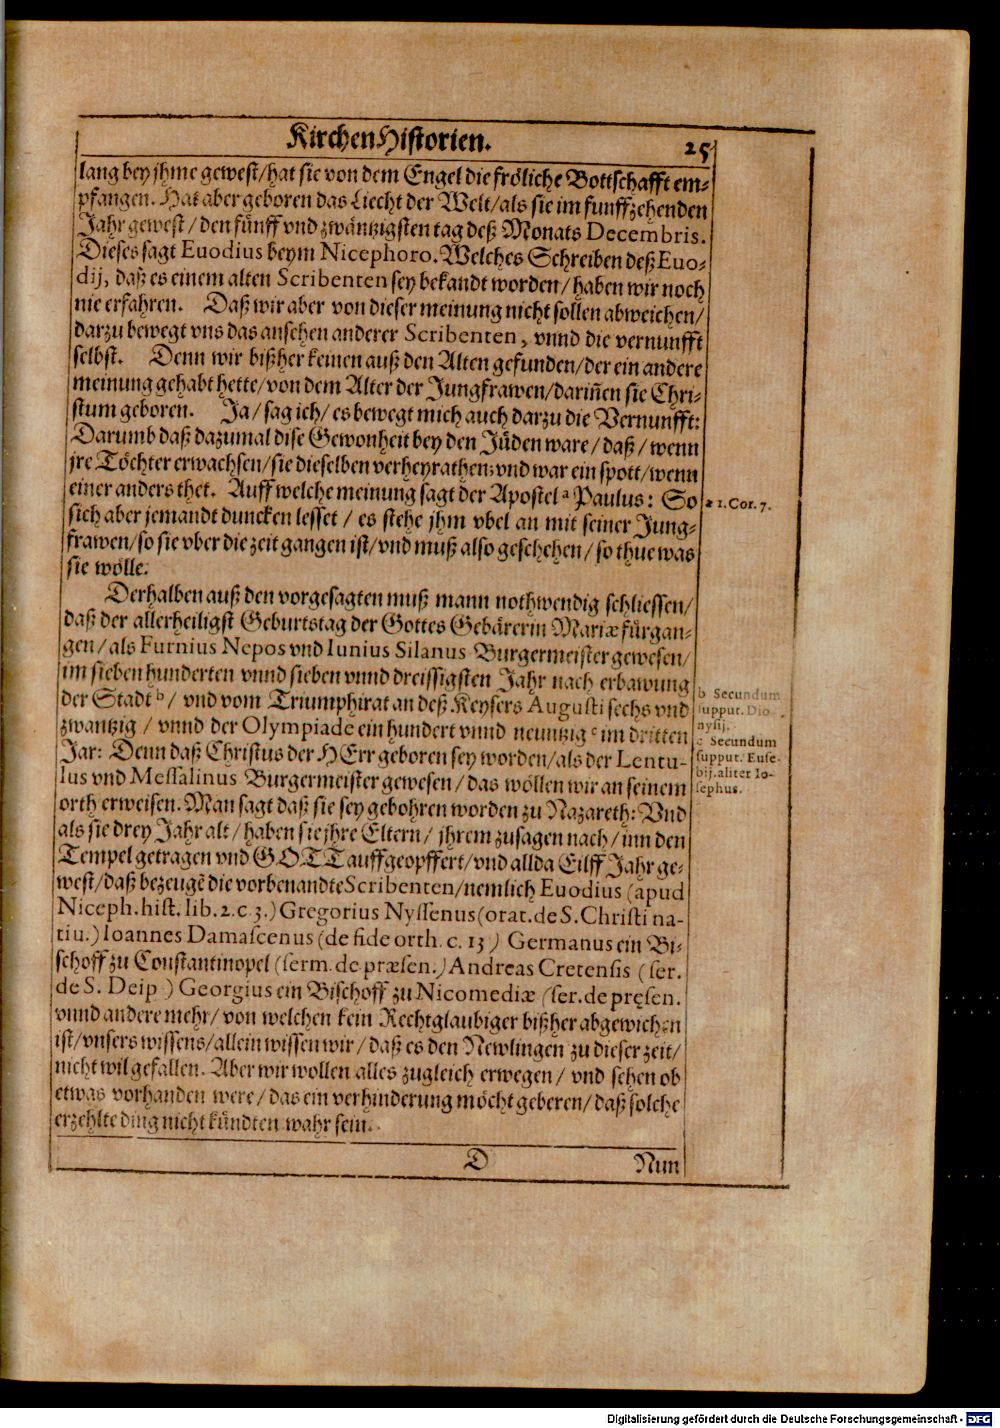 KirchenHistorien.
25
lang bey jhme gewest/hat sie von dem Engel die fröliche Bottschafft em-
pfangen. Hat aber geboren das Liecht der Welt/als sie im funffzehenden
Jahr gewest/den fünff vnd zwäntzigsten tag deß Monats Decembris.
Dieses sagt Euodius beym Nicephoro. Welches Schreiben deß Euo-
dij, daß es einem alten Scribenten sey bekandt worden/haben wir noch
nie erfahren. Daß wir aber von dieser meinung nicht sollen abweichen/
darzu bewegt vns das ansehen anderer Scribenten, vnnd die vernunfft
selbst. Denn wir bißher keinen auß den Alten gefunden/der ein andere
meinung gehabt hette/von dem Alter der Jungfrawen/dariñen sie Chri-
stum geboren. Ja/sag ich/es bewegt mich auch darzu die Vernunfft:
Darumb daß dazumal dise Gewonheit bey den Jüden ware/daß/wenn
jre Töchter erwachsen/sie dieselben verheyrathen: vnd war ein spott/wenn
einer anders thet. Auff welche meinung sagt der Apostel ᵃ Paulus: So
a 1. Cor. 7.
sich aber jemandt duncken lesset/es stehe jhm vbel an mit seiner Jung-
frawen/so sie vber die zeit gangen ist/vnd muß also geschehen/so thue was
sie wölle.
Derhalben auß den vorgesagten muß mann nothwendig schliessen/
daß der allerheiligst Geburtstag der Gottes Gebärerin Mariæ fürgan-
gen/als Furnius Nepos vnd Iunius Silanus Burgermeister gewesen/
im sieben hunderten vnnd sieben vnnd dreissigsten Jahr nach erbawung
der Stadt ᵇ/vnd vom Triumphirat an deß Keysers Augusti sechs vnd
zwantzig/vnnd der Olympiade ein hundert vnnd neuntzig ᶜ im dritten
Jar: Denn daß Christus der HErr geboren sey worden/als der Lentu-
lus vnd Messalinus Burgermeister gewesen/das wöllen wir an seinem
orth erweisen. Man sagt daß sie sey gebohren worden zu Nazareth: Vnd
als sie drey Jahr alt/haben sie jhre Eltern/jhrem zusagen nach/inn den
Tempel getragen vnd GOTT auffgeopffert/vnd allda Eilff Jahr ge-
west/daß bezeugẽ die vorbenandte Scribenten/nemlich Euodius (apud
Niceph. hist. lib. 2. c. 3.) Gregorius Nyssenus (orat. de S. Christi na-
tiu.) Ioannes Damascenus (de fide orth. c. 15) Germanus ein Bi-
schoff zu Constantinopel (serm. de præsen.) Andreas Cretensis (ser.
de S. Deip) Georgius ein Bischoff zu Nicomediæ (ser. de pręsen.
vnnd andere mehr/von welchen kein Rechtglaubiger bißher abgewichen
ist/vnsers wissens/allein wissen wir/daß es den Newlingen zu dieser zeit/
nicht wil gefallen. Aber wir wollen alles zugleich erwegen/vnd sehen ob
etwas vorhanden were/das ein verhinderung möcht geberen/daß solche
erzehlte ding nicht kündten wahr sein.
b Secundum
supput. Dio-
nysij.
c Secundum
supput. Euse-
bij. aliter Io-
sephus.
D
Nun
Digitalisierung gefördert durch die Deutsche Forschungsgemeinschaft - DFG